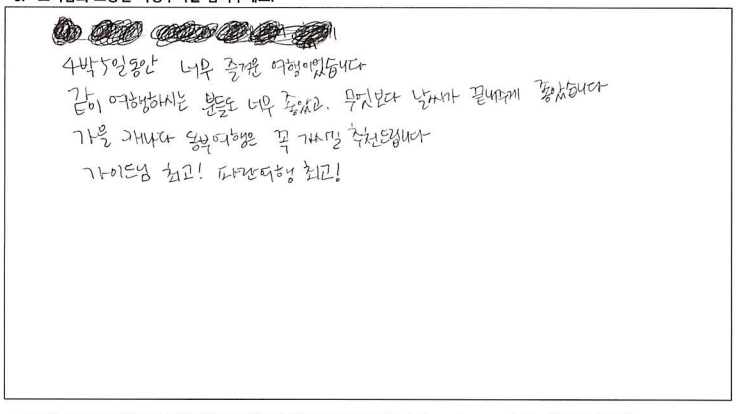 4박5일동안 너무 즐거운 여행이었습니다
같이 여행하시는 분들도 너무 좋았고. 무엇보다 날씨가 끝내주게 좋았습니다
가을 캐나다 동부여행은 꼭 가시길 추천드립니다
가이드님 최고! 파란여행 최고!